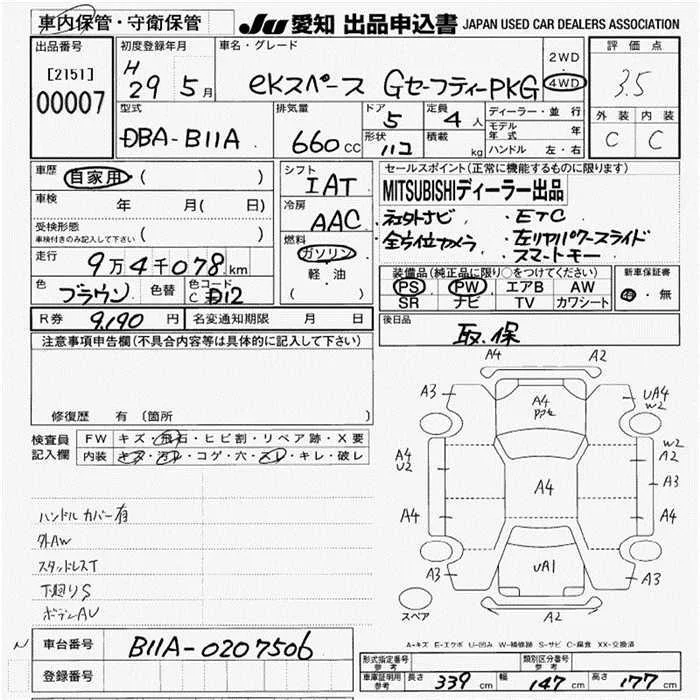 車内保管・守衛保管
JU 愛知 出品申込書 JAPAN USED CAR DEALERS ASSOCIATION
出品番号
[2151]
00007
初度登録年月
H 29 5 月
車名・グレード
eKスペース GセーフティーPKG
2WD
4WD
評価点
3.5
外装 内装
C C
型式
DBA-B11A
排気量
660 cc
ドア
5
形状
ハコ
定員
4 人
積載
kg
ディーラー・並行
モデル年式 年
ハンドル 左・右
車歴
自家用 ( )
車検 年 月( 日)
受検形態
車検付きのみ記入して下さい ( )
走行 9万4千078 km
色 ブラウン 色替 色コード D12
シフト
IAT
冷房
AAC
燃料
ガソリン
軽・油
( )
セールスポイント(正常に機能するものに限ります)
MITSUBISHIディーラー出品
社外ナビ ・ETC
全方位カメラ ・左リヤパワースライド
スマートキー
装備品(純正品に限り○をつけてください)
PS PW エアB AW
SR ナビ TV カワシート
新車保証書
有・無
R券 9,190 円 名変通知期限 月 日
後日品
取.保
注意事項申告欄(不具合内容等は具体的に記入して下さい)
修復歴 有 (箇所 )
検査員記入欄
FW キズ・飛石・ヒビ割・リペア跡・X要
内装 キズ・汚レ・コゲ・穴・スレ・キレ・破レ
ハンドルカバー有
外AW
スタッドレスT
下廻りS
ボデーAU
A4
A2
A3
UA4
W2
A4
W2
A4
A2
U2
A3
A4
A4
A4
UA1
A3
A3
A2
スペア
A-キズ E-エクボ U-凹み W-補修跡 S-サビ C-腐食 XX-交換済
N
車台番号 B11A-0207506
登録番号
形式指定番号 参考
類別区分番号 参考
車庫証明用 参考
長さ 339 cm 幅 147 cm 高さ 177 cm